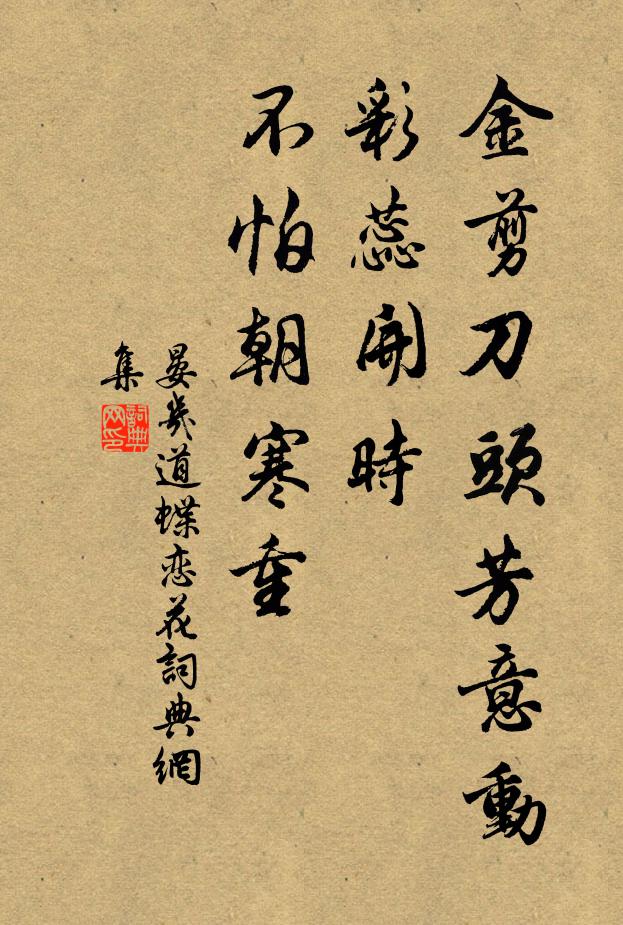 金剪刀頭芳意動
彩蕊開時
不怕朝寒重
晏幾道蝶恋花詞典網
集
詞典网印